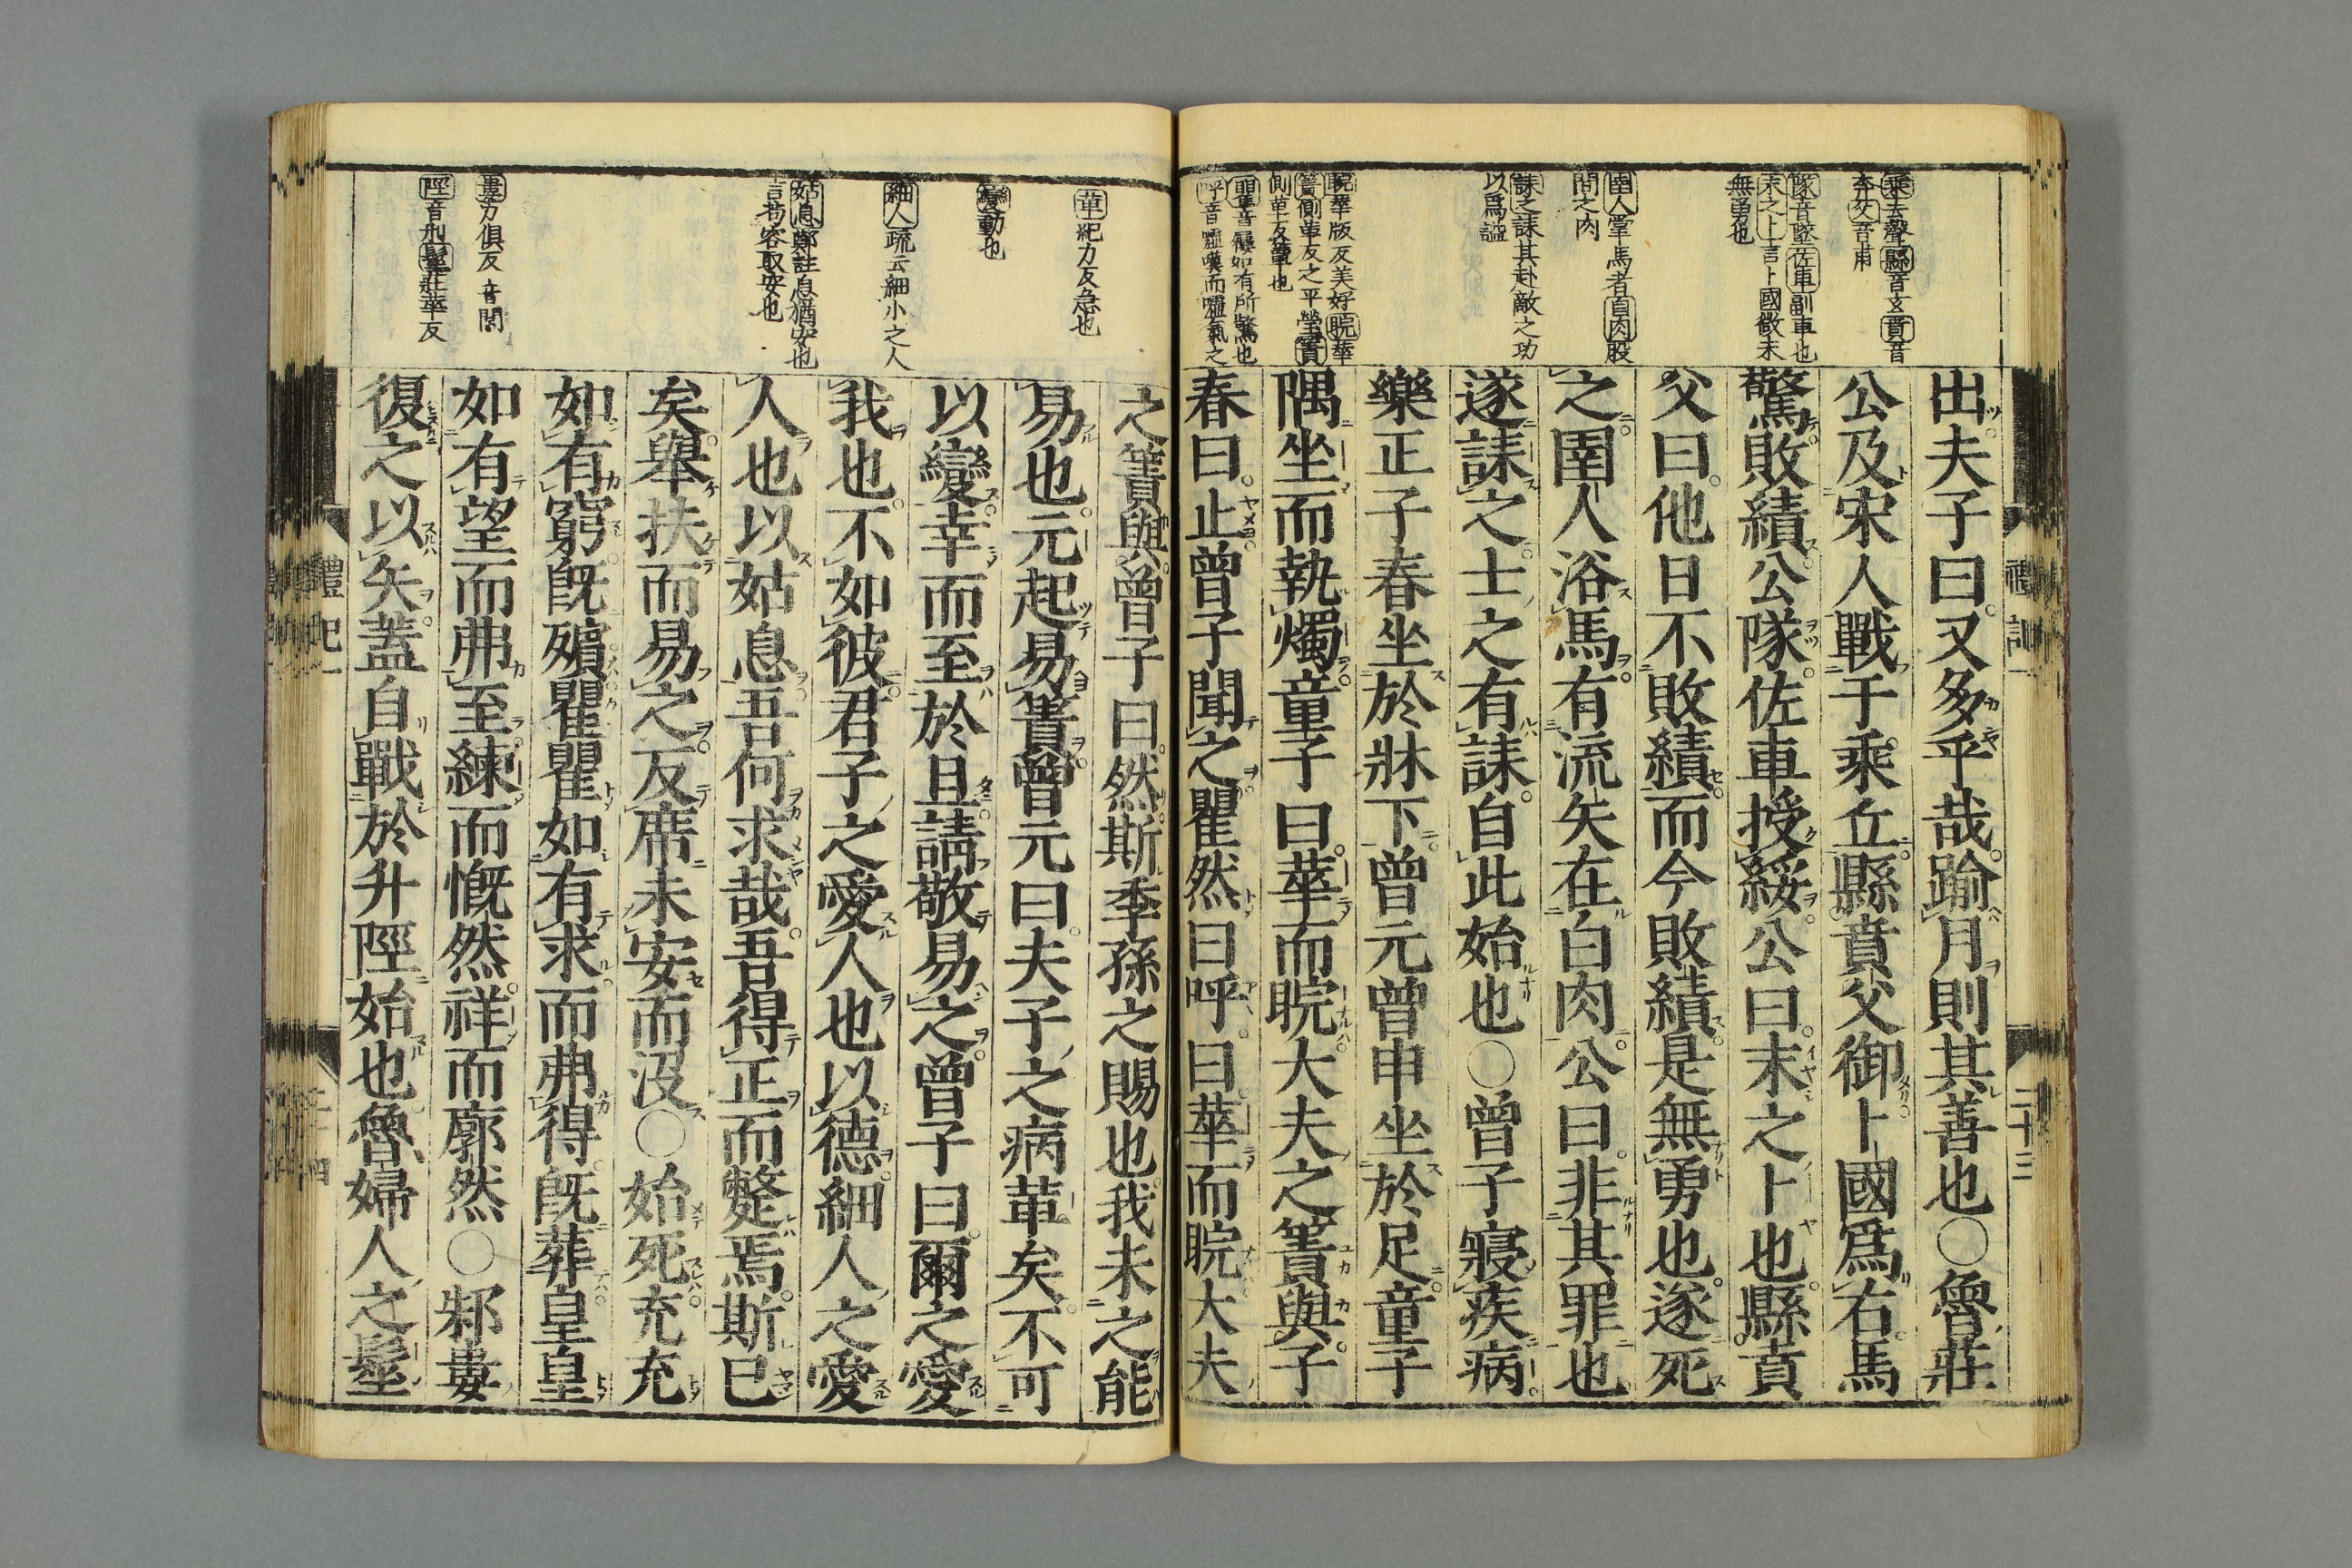 出夫子曰又多乎哉踰月則其善也○魯莊
公及宋人戰于乘丘縣賁父御卜國爲右馬
驚敗績公隊佐車授綏公曰末之卜也縣賁
父曰他日不敗績而今敗績是無勇也遂死
之圉人浴馬有流矢在白肉公曰非其罪也
遂誄之士之有誄自此始也○曾子寢疾病
樂正子春坐於牀下曾元曾申坐於足童子
隅坐而執燭童子曰華而睆大夫之簀與子
春曰止曾子聞之瞿然曰呼曰華而睆大夫
乘去聲縣音玄賁音
奔父音甫
隊音墜佐車副車也
末之卜言卜國微末
無勇也
圉人掌馬者白肉股
間之肉
誄之誄其赴敵之功
以爲謚
睆華版反美好睆華
簀側革反之平瑩簀
側革反簟也
瞿音懼如有所驚也
呼音噓嘆而噓氣之
禮記一
二十三
之簀與曾子曰然斯季孫之賜也我未之能
易也元起易簀曾元曰夫子之病革矣不可
以變幸而至於旦請敬易之曾子曰爾之愛
我也不如彼君子之愛人也以德細人之愛
人也以姑息吾何求哉吾得正而斃焉斯已
矣舉扶而易之反席未安而沒○始死充充
如有窮旣殯瞿瞿如有求而弗得旣葬皇皇
如有望而弗至練而慨然祥而廓然○邾婁
復之以矢蓋自戰於升陘始也魯婦人之髽
革紀力反急也
變動也
細人疏云細小之人
姑息鄭註息猶安也
言苟容取安也
婁力俱反 音閭
陘音刑髽莊華反
禮記一